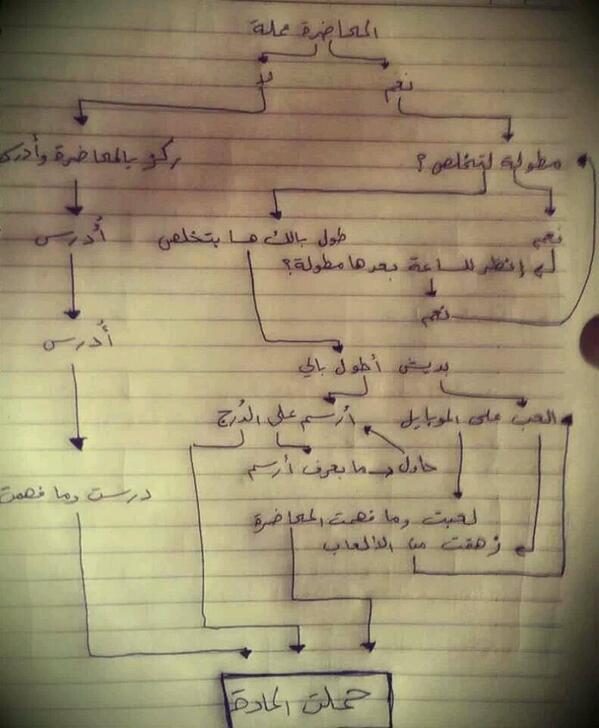 المحاضرة مملة
لا
نعم
ركز بالمحاضرة وأدرس
مطولة لتخلص؟
أُدرس
طول بالك هسا بتخلص
نعم
إنتظر للساعة بعدها مطولة؟
نعم
أُدرس
بديش أطول بالي
أرسم على الدُرج
العب على الموبايل
حاول
ما بعرف أرسم
درست وما فهمت
لعبت وما فهمت المحاضرة
زهقت من الألعاب
حملت المادة